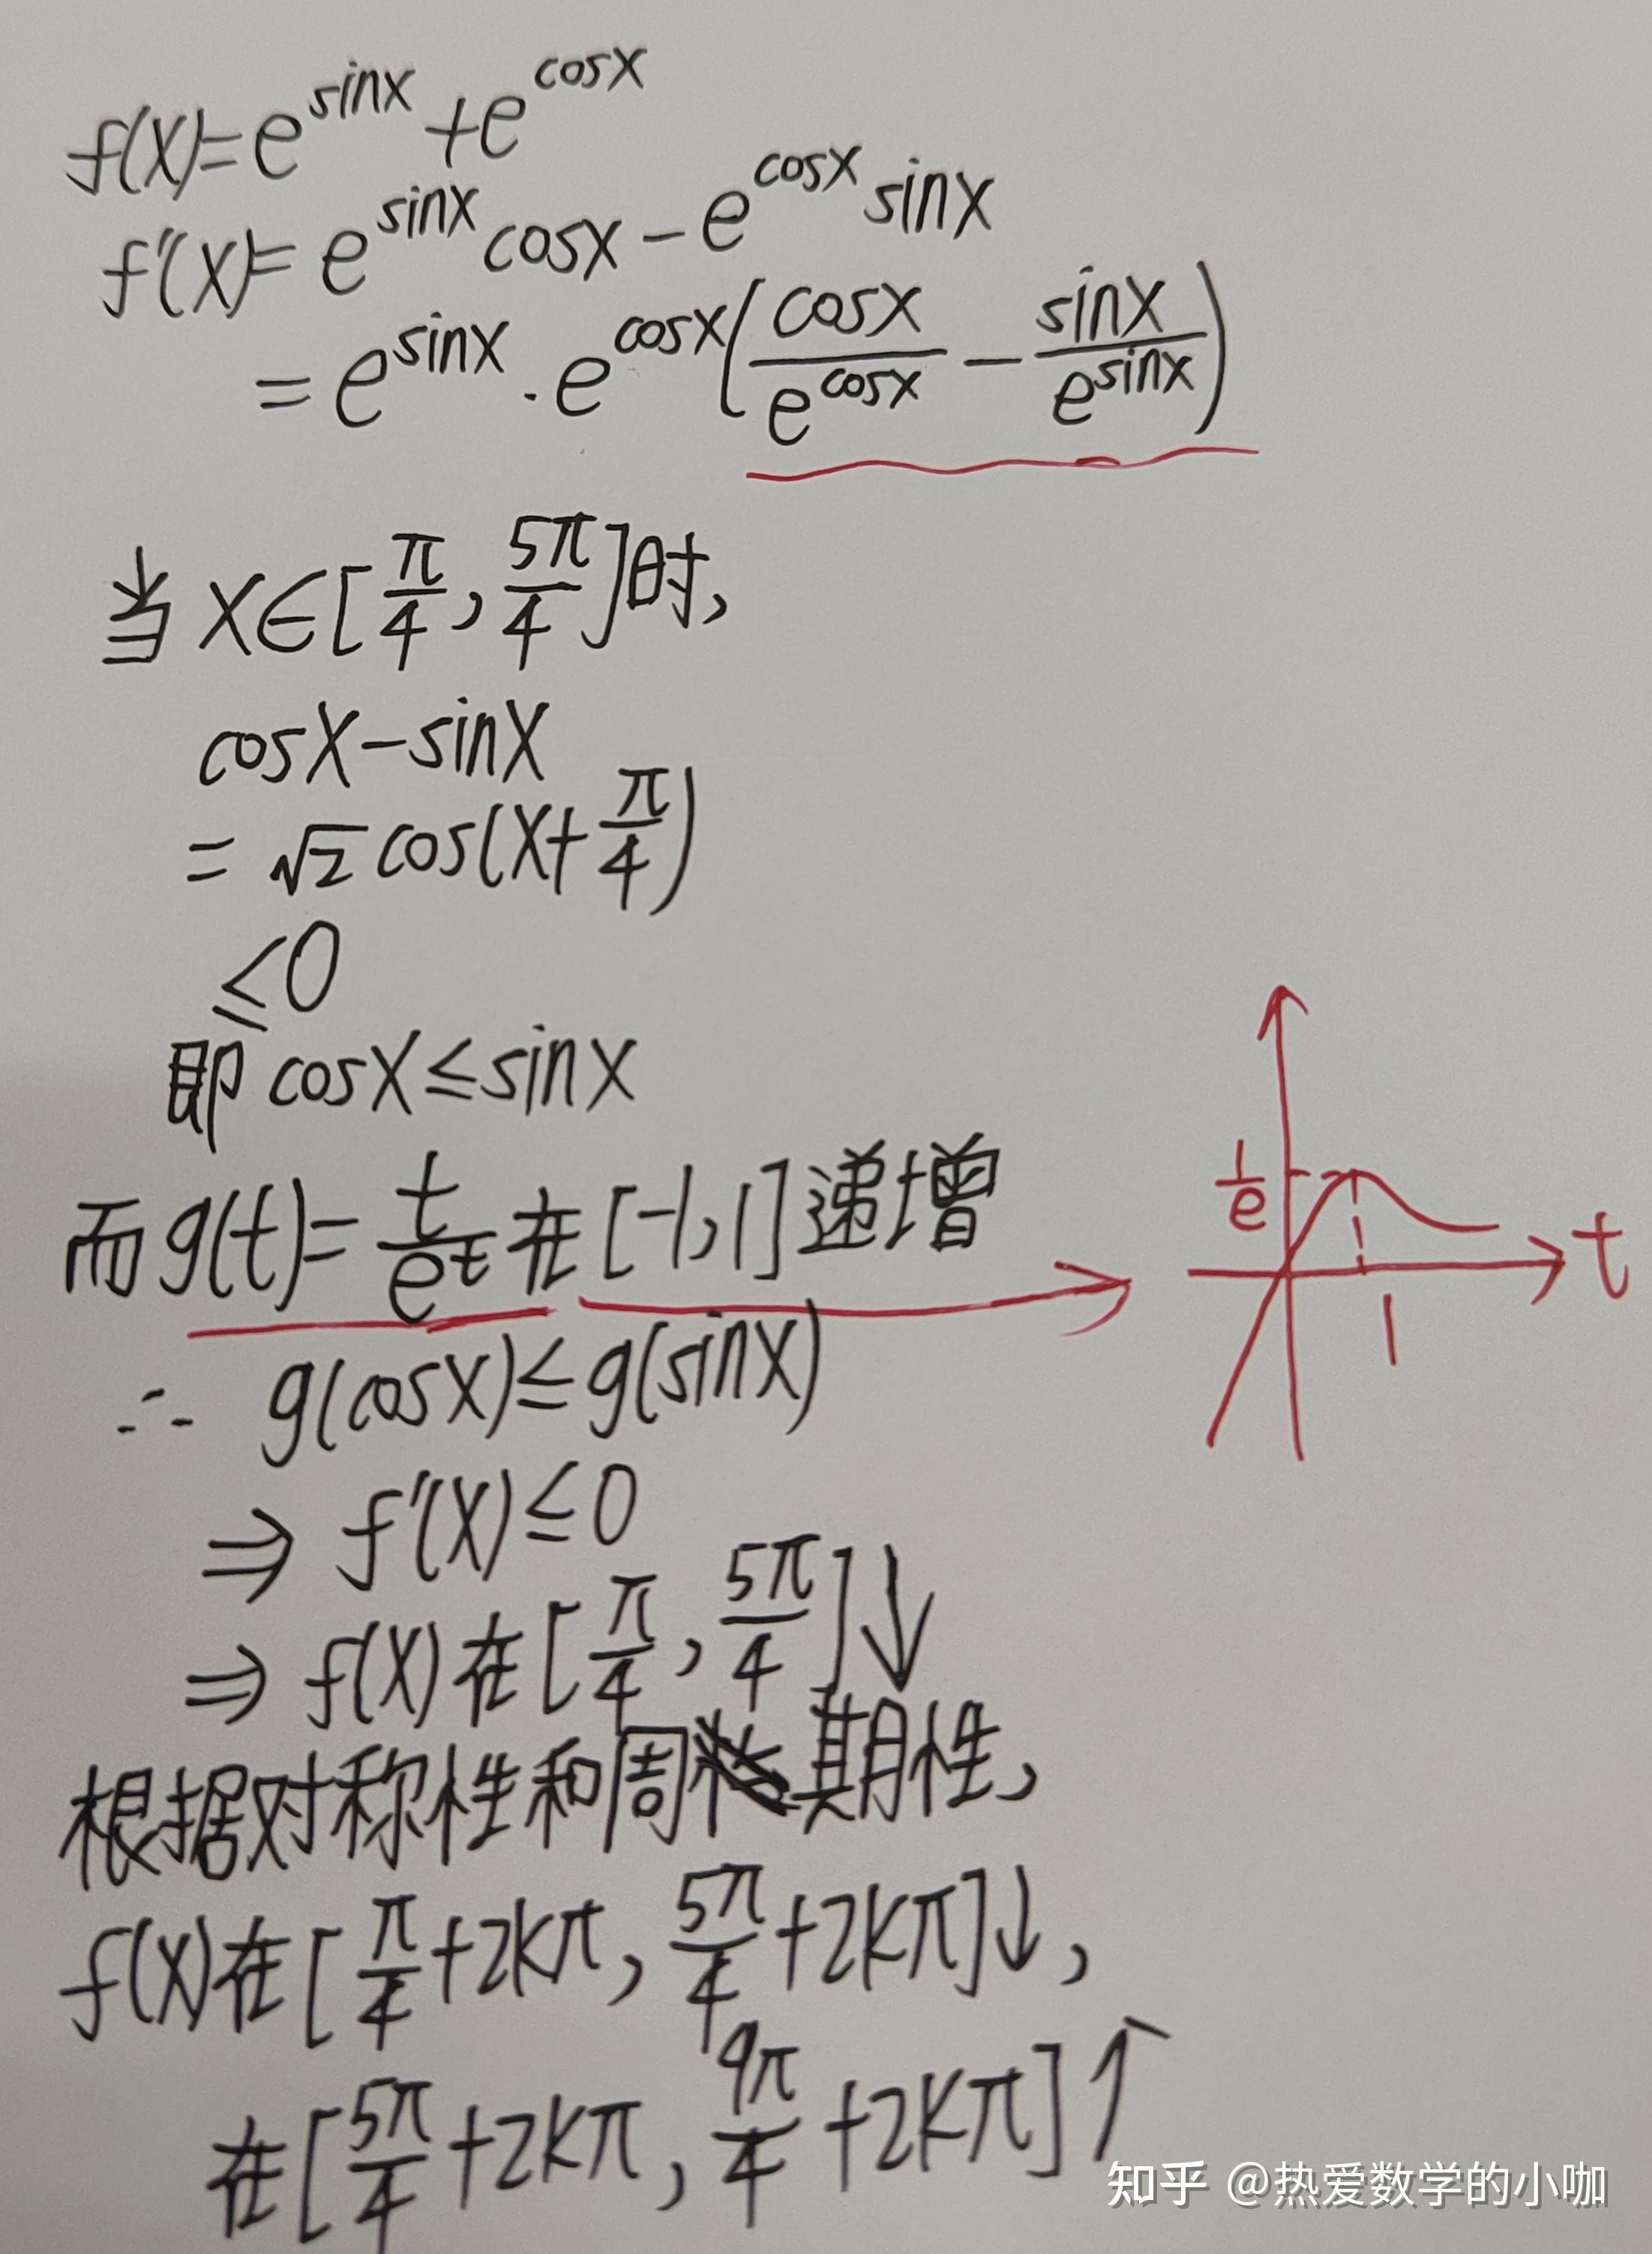 f(x)=e^{sinx}+e^{cosx}
f'(x)=e^{sinx}cosx-e^{cosx}sinx
=e^{sinx}·e^{cosx}(\frac{cosx}{e^{cosx}}-\frac{sinx}{e^{sinx}})
当x∈[\frac{π}{4},\frac{5π}{4}]时,
cosx-sinx
=√2cos(x+\frac{π}{4})
≤0
即cosx≤sinx
而g(t)=\frac{t}{e^t}在[-1,1]递增
\frac{1}{e}
t
1
∴ g(cosx)≤g(sinx)
⇒f'(x)≤0
⇒f(x)在[\frac{π}{4},\frac{5π}{4}]↓
根据对称性和周期性,
f(x)在[\frac{π}{4}+2kπ,\frac{5π}{4}+2kπ]↓,
在[\frac{5π}{4}+2kπ,\frac{9π}{4}+2kπ]↑
知乎 @热爱数学的小咖